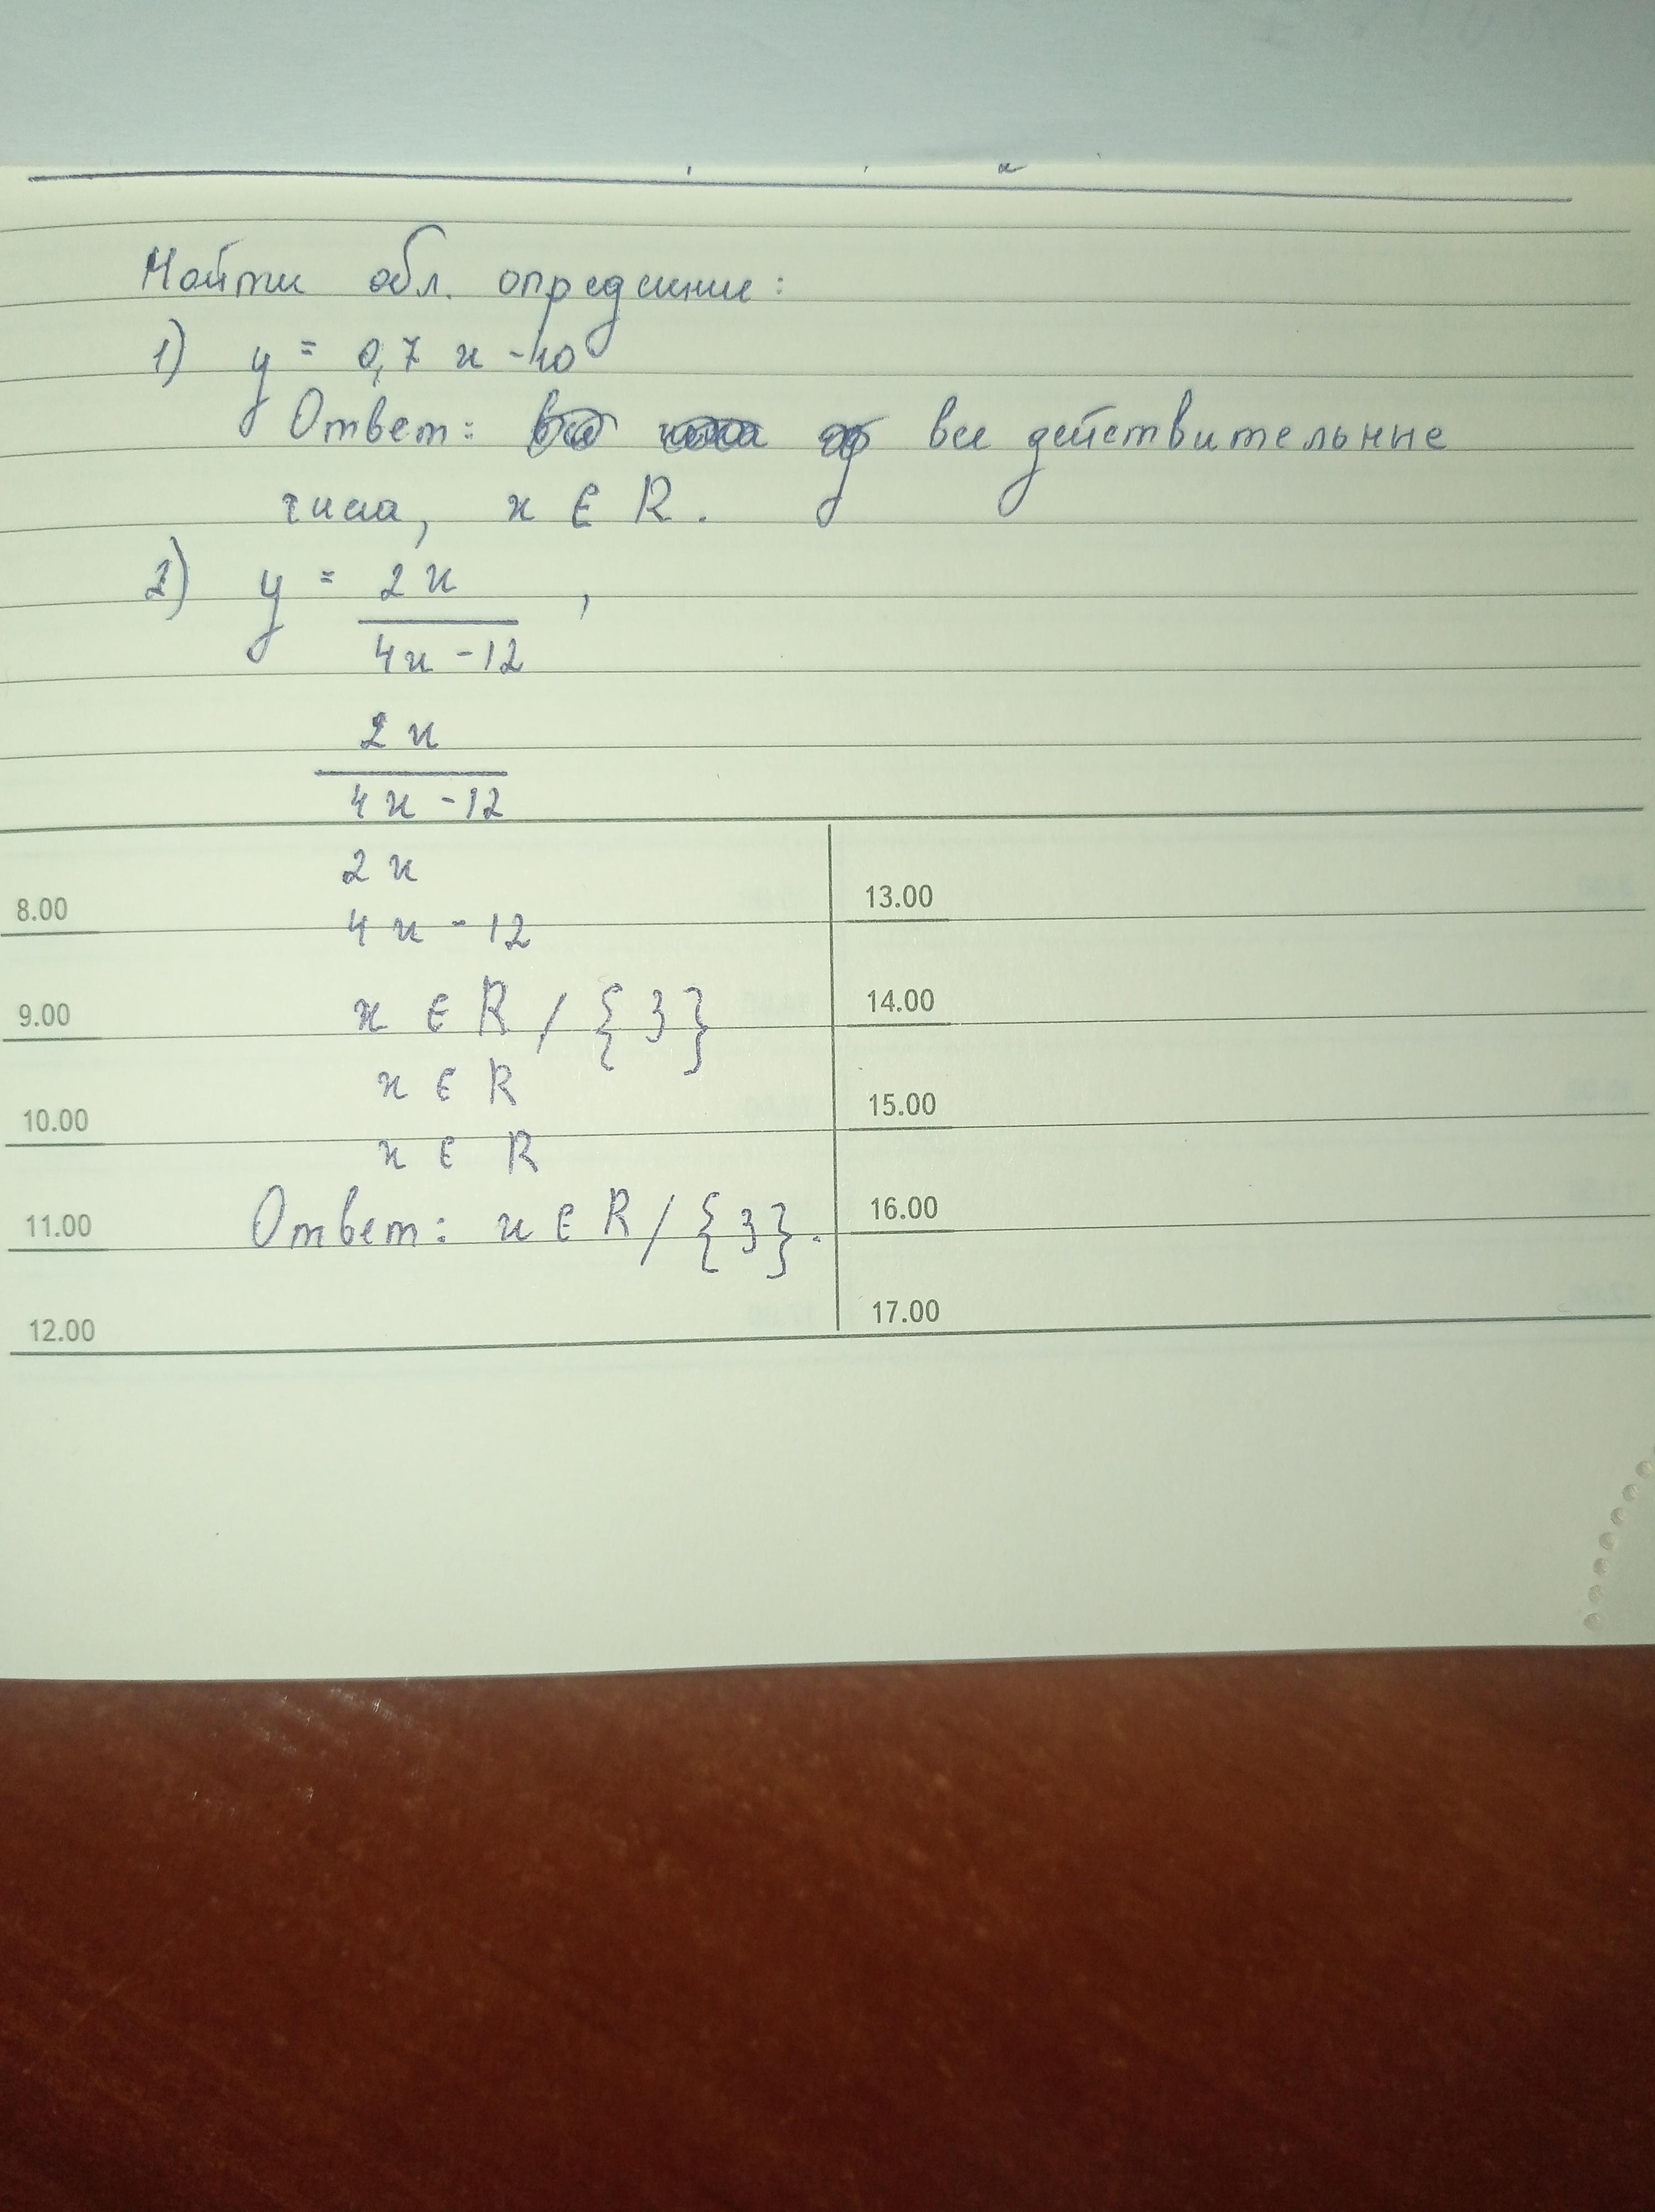 Найти обл. определение:
1) y = 0,7 x - 10
Ответ: все действительные
числа, x ∈ R.
2) y = 2x ,
4x - 12
2x
4x - 12
2x
8.00
13.00
4x - 12
x ∈ R / {3}
9.00
14.00
x ∈ R
10.00
15.00
x ∈ R
11.00
Ответ: x ∈ R / {3}.
16.00
12.00
17.00